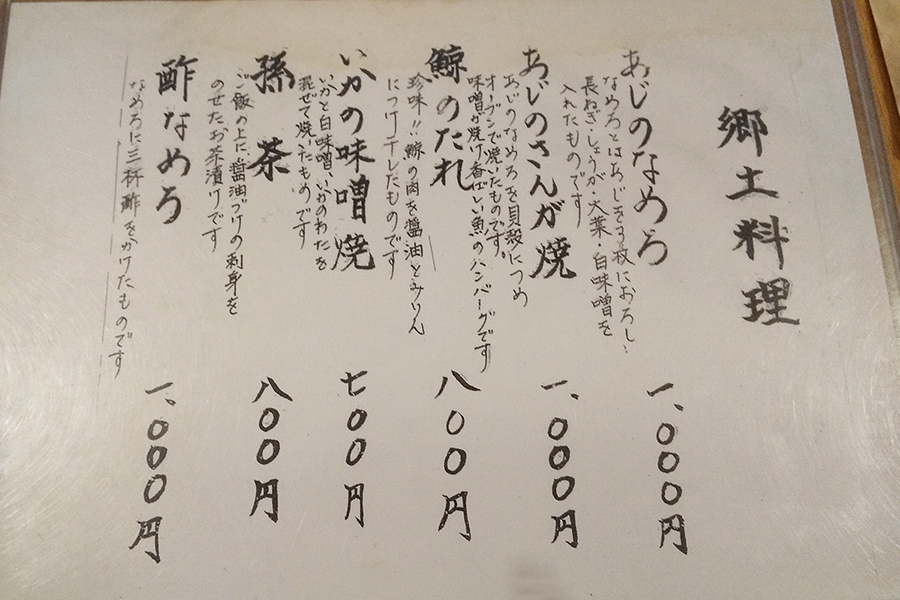 郷土料理
あじのなめろ
なめろとはあじを3枚におろし、
長ねぎ・しょうが・大葉・白味噌を
入れたものです
一、000円
あじのさんが焼
あじのなめろを貝殻につめ
オーブンで焼いたものです。
味噌が焼け香ばしい魚のハンバーグです
一、000円
鯨のたれ
珍味!!鯨の肉を醤油とみりん
につけ干したものです
八00円
いかの味噌焼
いかと白味噌、いかのわたを
混ぜて焼いたものです
七00円
孫茶
ご飯の上に、醤油づけの刺身を
のせたお茶漬けです
八00円
酢なめろ
なめろに三杯酢をかけたものです
一、000円